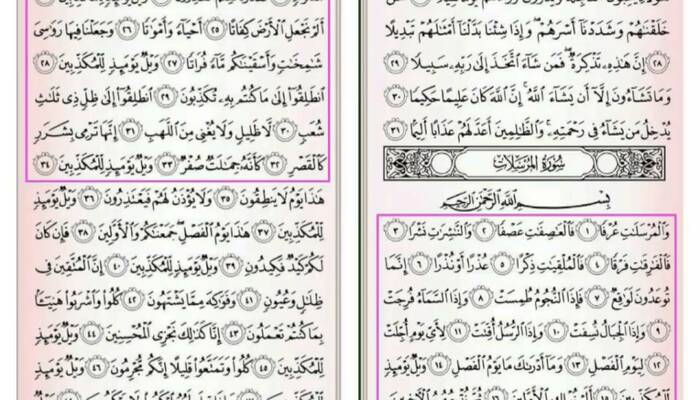 خَلَقْنَٰهُمْ وَشَدَدْنَآ أَسْرَهُمْ ۖ وَإِذَا شِئْنَا بَدَّلْنَآ أَمْثَٰلَهُمْ تَبْدِيلًا
٢٨ إِنَّ هَٰذِهِۦ تَذْكِرَةٌ ۖ فَمَن شَآءَ ٱتَّخَذَ إِلَىٰ رَبِّهِۦ سَبِيلًا ٢٩
وَمَا تَشَآءُونَ إِلَّآ أَن يَشَآءَ ٱللَّهُ ۚ إِنَّ ٱللَّهَ كَانَ عَلِيمًا حَكِيمًا ٣٠
يُدْخِلُ مَن يَشَآءُ فِى رَحْمَتِهِۦ ۚ وَٱلظَّٰلِمِينَ أَعَدَّ لَهُمْ عَذَابًا أَلِيمًۢا ٣١
سُورَةُ المُرْسَلَاتِ
بِسْمِ ٱللَّهِ ٱلرَّحْمَٰنِ ٱلرَّحِيمِ
وَٱلْمُرْسَلَٰتِ عُرْفًا ١ فَٱلْعَٰصِفَٰتِ عَصْفًا ٢ وَٱلنَّٰشِرَٰتِ نَشْرًا ٣
فَٱلْفَٰرِقَٰتِ فَرْقًا ٤ فَٱلْمُلْقِيَٰتِ ذِكْرًا ٥ عُذْرًا أَوْ نُذْرًا ٦ إِنَّمَا
تُوعَدُونَ لَوَٰقِعٌ ٧ فَإِذَا ٱلنُّجُومُ طُمِسَتْ ٨ وَإِذَا ٱلسَّمَآءُ فُرِجَتْ
٩ وَإِذَا ٱلْجِبَالُ نُسِفَتْ ١٠ وَإِذَا ٱلرُّسُلُ أُقِّتَتْ ١١ لِأَىِّ يَوْمٍ أُجِّلَتْ
١٢ لِيَوْمِ ٱلْفَصْلِ ١٣ وَمَآ أَدْرَىٰكَ مَا يَوْمُ ٱلْفَصْلِ ١٤ وَيْلٌ يَوْمَئِذٍ
لِّلْمُكَذِّبِينَ ١٥ أَلَمْ نُهْلِكِ ٱلْأَوَّلِينَ ١٦ ثُمَّ نُتْبِعُهُمُ ٱلْءَاخِرِينَ
أَلَمْ نَجْعَلِ ٱلْأَرْضَ كِفَاتًا ٢٥ أَحْيَآءً وَأَمْوَٰتًا ٢٦ وَجَعَلْنَا فِيهَا رَوَٰسِىَ
شَٰمِخَٰتٍ وَأَسْقَيْنَٰكُم مَّآءً فُرَاتًا ٢٧ وَيْلٌ يَوْمَئِذٍ لِّلْمُكَذِّبِينَ ٢٨
ٱنطَلِقُوٓا۟ إِلَىٰ مَا كُنتُم بِهِۦ تُكَذِّبُونَ ٢٩ ٱنطَلِقُوٓا۟ إِلَىٰ ظِلٍّ ذِى ثَلَٰثِ
شُعَبٍ ٣٠ لَّا ظَلِيلٍ وَلَا يُغْنِى مِنَ ٱللَّهَبِ ٣١ إِنَّهَا تَرْمِى بِشَرَرٍ
كَٱلْقَصْرِ ٣٢ كَأَنَّهُۥ جِمَٰلَتٌ صُفْرٌ ٣٣ وَيْلٌ يَوْمَئِذٍ لِّلْمُكَذِّبِينَ ٣٤
هَٰذَا يَوْمُ لَا يَنطِقُونَ ٣٥ وَلَا يُؤْذَنُ لَهُمْ فَيَعْتَذِرُونَ ٣٦ وَيْلٌ يَوْمَئِذٍ
لِّلْمُكَذِّبِينَ ٣٧ هَٰذَا يَوْمُ ٱلْفَصْلِ ۖ جَمَعْنَٰكُمْ وَٱلْأَوَّلِينَ ٣٨ فَإِن كَانَ
لَكُمْ كَيْدٌ فَكِيدُونِ ٣٩ وَيْلٌ يَوْمَئِذٍ لِّلْمُكَذِّبِينَ ٤٠ إِنَّ ٱلْمُتَّقِينَ فِى
ظِلَٰلٍ وَعُيُونٍ ٤١ وَفَوَٰكِهَ مِمَّا يَشْتَهُونَ ٤٢ كُلُوا۟ وَٱشْرَبُوا۟ هَنِيٓـًٔۢا
بِمَا كُنتُمْ تَعْمَلُونَ ٤٣ إِنَّا كَذَٰلِكَ نَجْزِى ٱلْمُحْسِنِينَ ٤٤ وَيْلٌ يَوْمَئِذٍ
لِّلْمُكَذِّبِينَ ٤٥ كُلُوا۟ وَتَمَتَّعُوا۟ قَلِيلًا إِنَّكُم مُّجْرِمُونَ ٤٦ وَيْلٌ يَوْمَئِذٍ